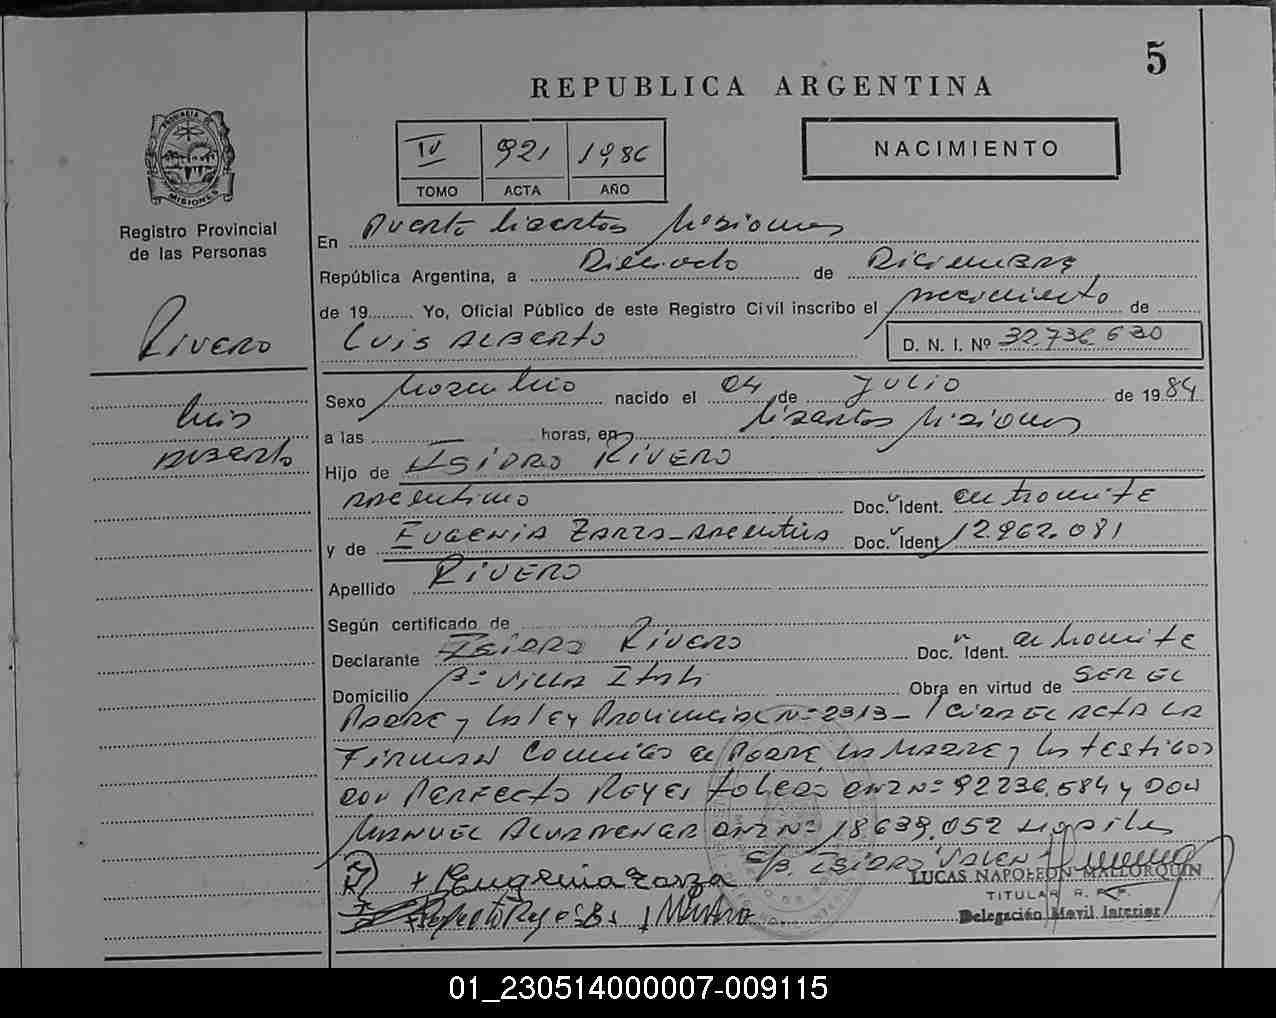 5
REPUBLICA ARGENTINA
IV 921 1986
TOMO ACTA AÑO
NACIMIENTO
PROVINCIA DE
MISIONES
Registro Provincial
de las Personas
RIVERO
Luis
ALBERTO
En Puerto Libertad Misiones
República Argentina, a Dieciocho de DICIEMBRE
de 19 Yo, Oficial Público de este Registro Civil inscribo el nacimiento de
LUIS ALBERTO D. N. I. Nº 32.736.630
Sexo Masculino nacido el 04 de JULIO de 1984
a las — horas, en Libertad Misiones
Hijo de ISIDRO RIVERO
argentino Doc. Ident. en tramite
y de EUGENIA ZARZA - argentina Doc. Ident 12.962.081
Apellido RIVERO
Según certificado de
Declarante ISIDRO RIVERO Doc. Ident. en tramite
Domicilio Bº VILLA Itatí Obra en virtud de SER EL
PADRE y LA LEY Provincial Nº 2313 - LEIDA EL ACTA LA
FIRMAN Conmigo el PADRE, LA MADRE y los testigos
don PERFECTO REYES TOLEDO Nº 92236.584 y DON
MANUEL Nº 18639.052
Eugenia Zarza ISIDRO
LUCAS NAPOLEON MALLORQUIN
TITULAR R. P. P.
Delegación Movil Interior
01_230514000007-009115